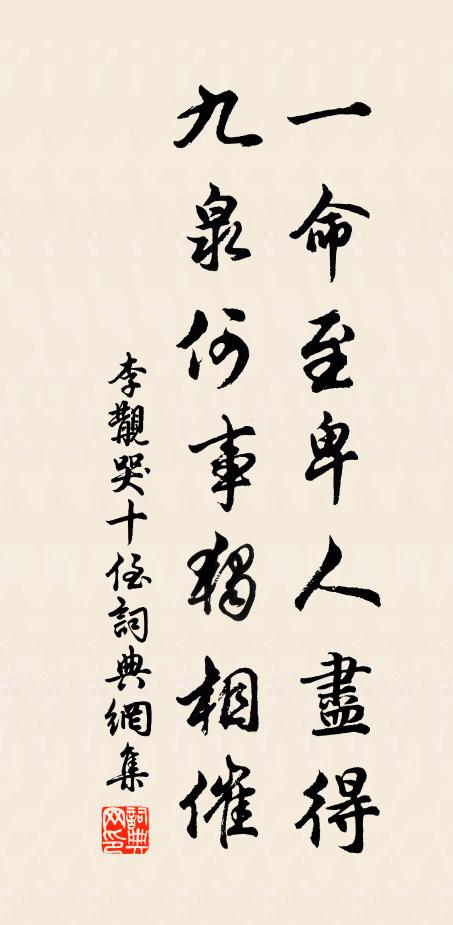 一命至卑人盡得
九泉何事獨相催
李覯哭十侄詞典網集
詞典网印